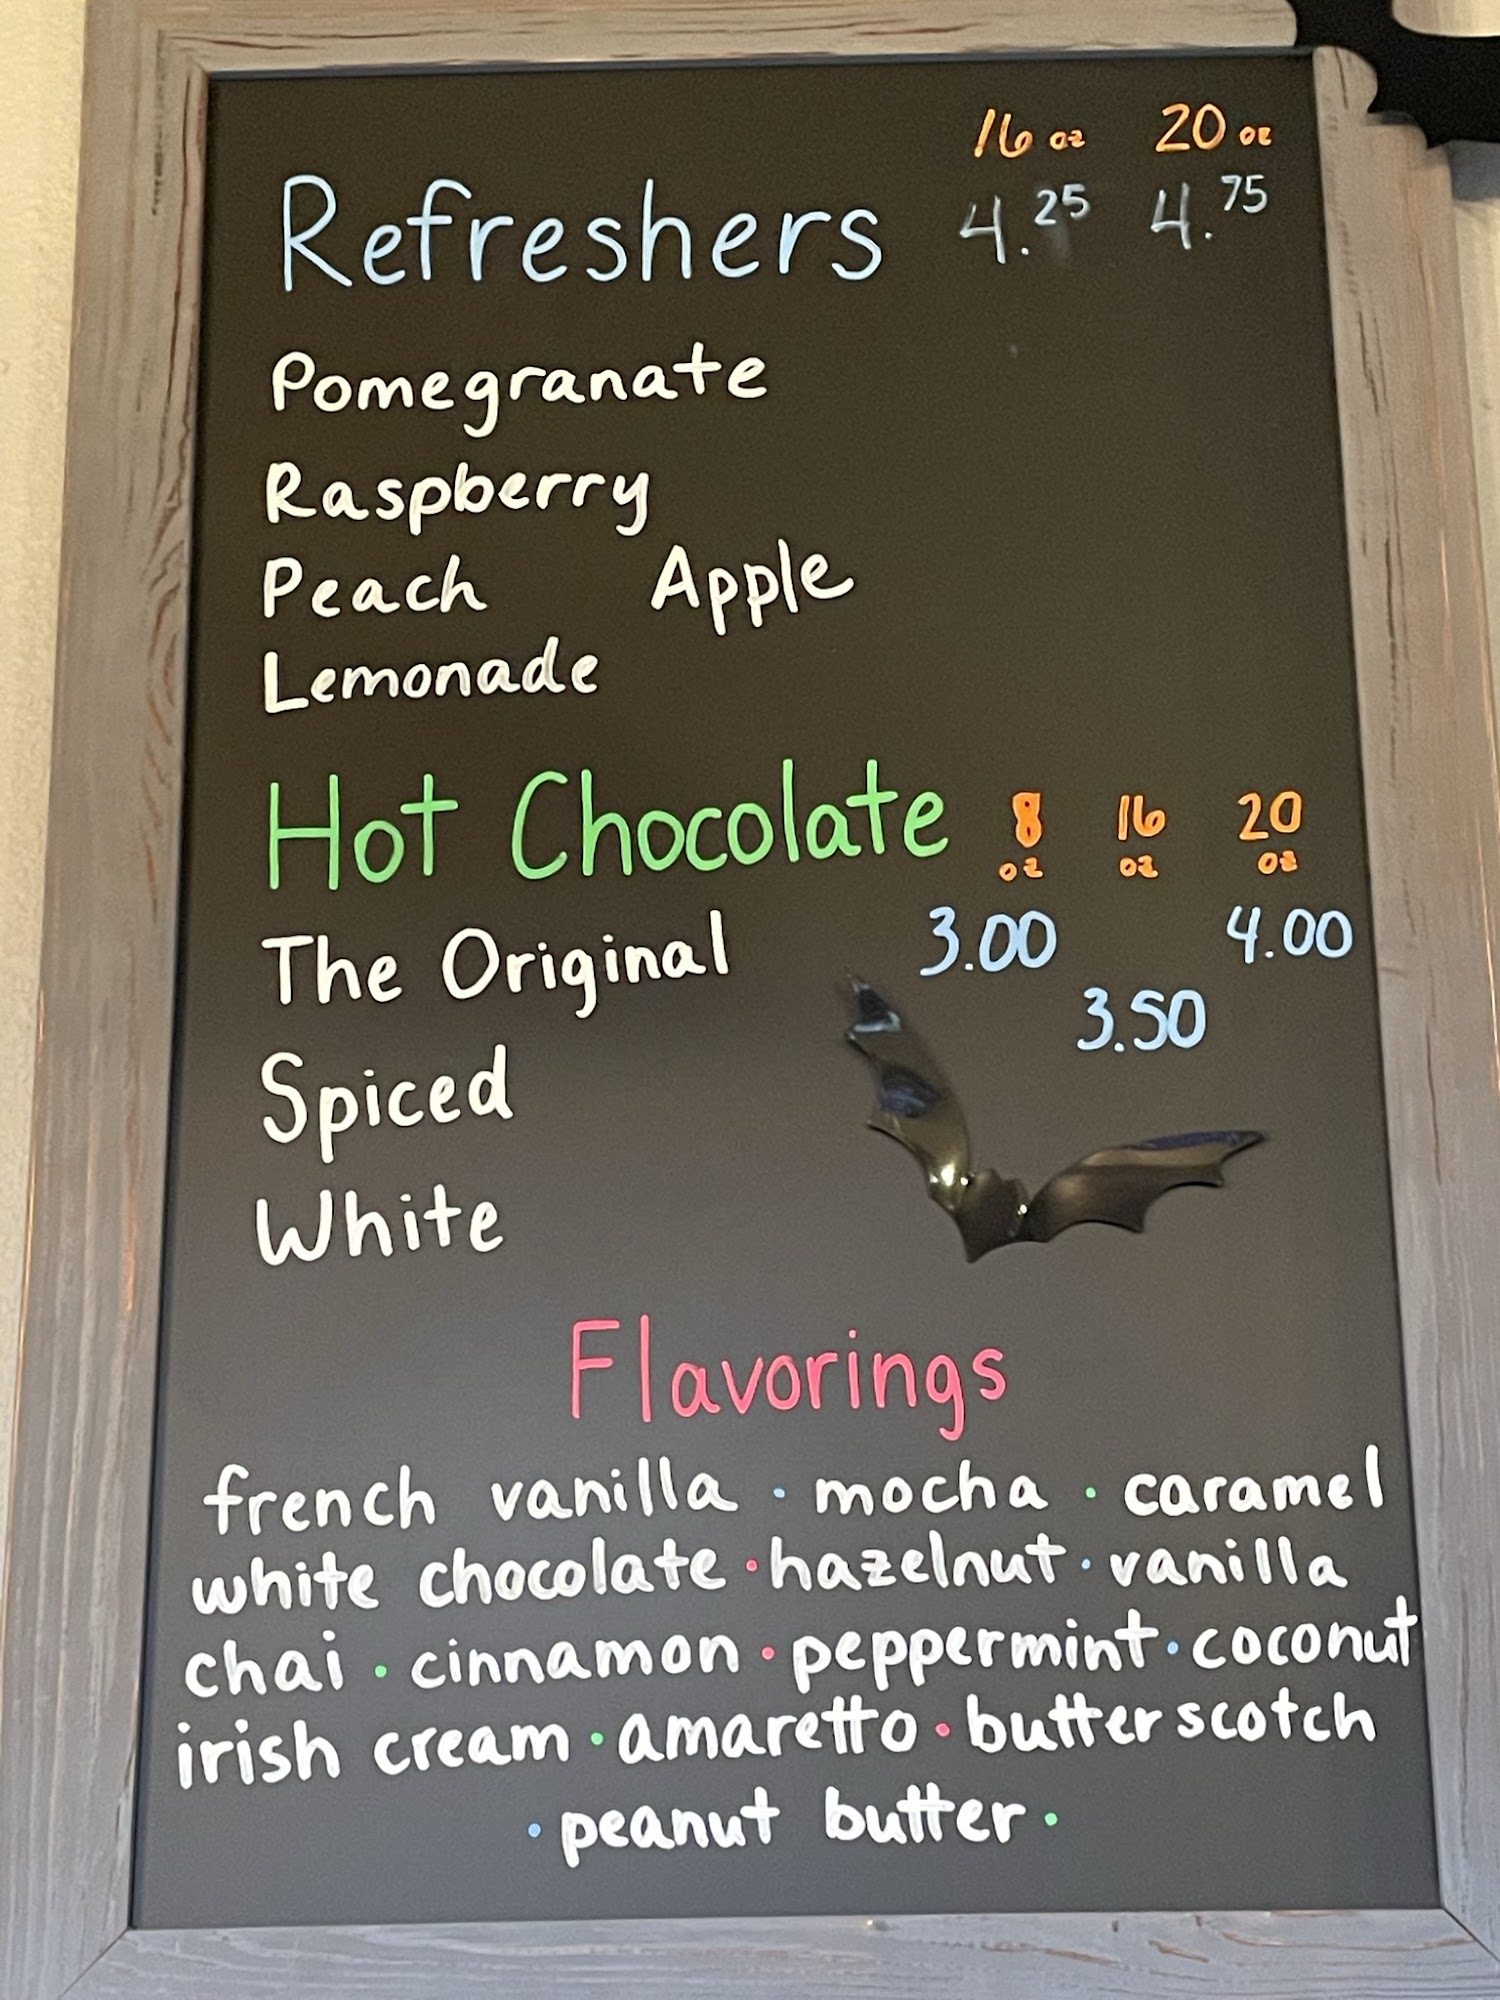 16 oz 20 oz
Refreshers 4.25 4.75
Pomegranate
Raspberry
Peach Apple
Lemonade
Hot Chocolate 8 oz 16 oz 20 oz
The Original 3.00 4.00
3.50
Spiced
White
Flavorings
french vanilla · mocha · caramel
white chocolate · hazelnut · vanilla
chai · cinnamon · peppermint · coconut
irish cream · amaretto · butterscotch
· peanut butter ·